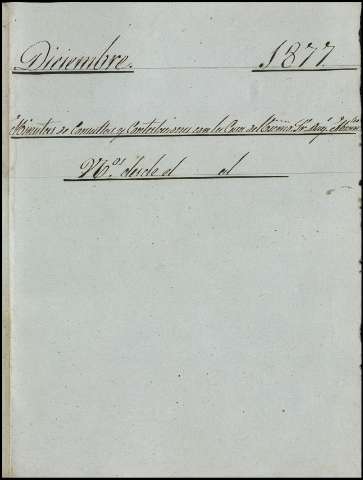 Diciembre. 1877
Minutas de Consultas y Contestaciones con la Casa del Excmo. Sr.
N.os desde el al